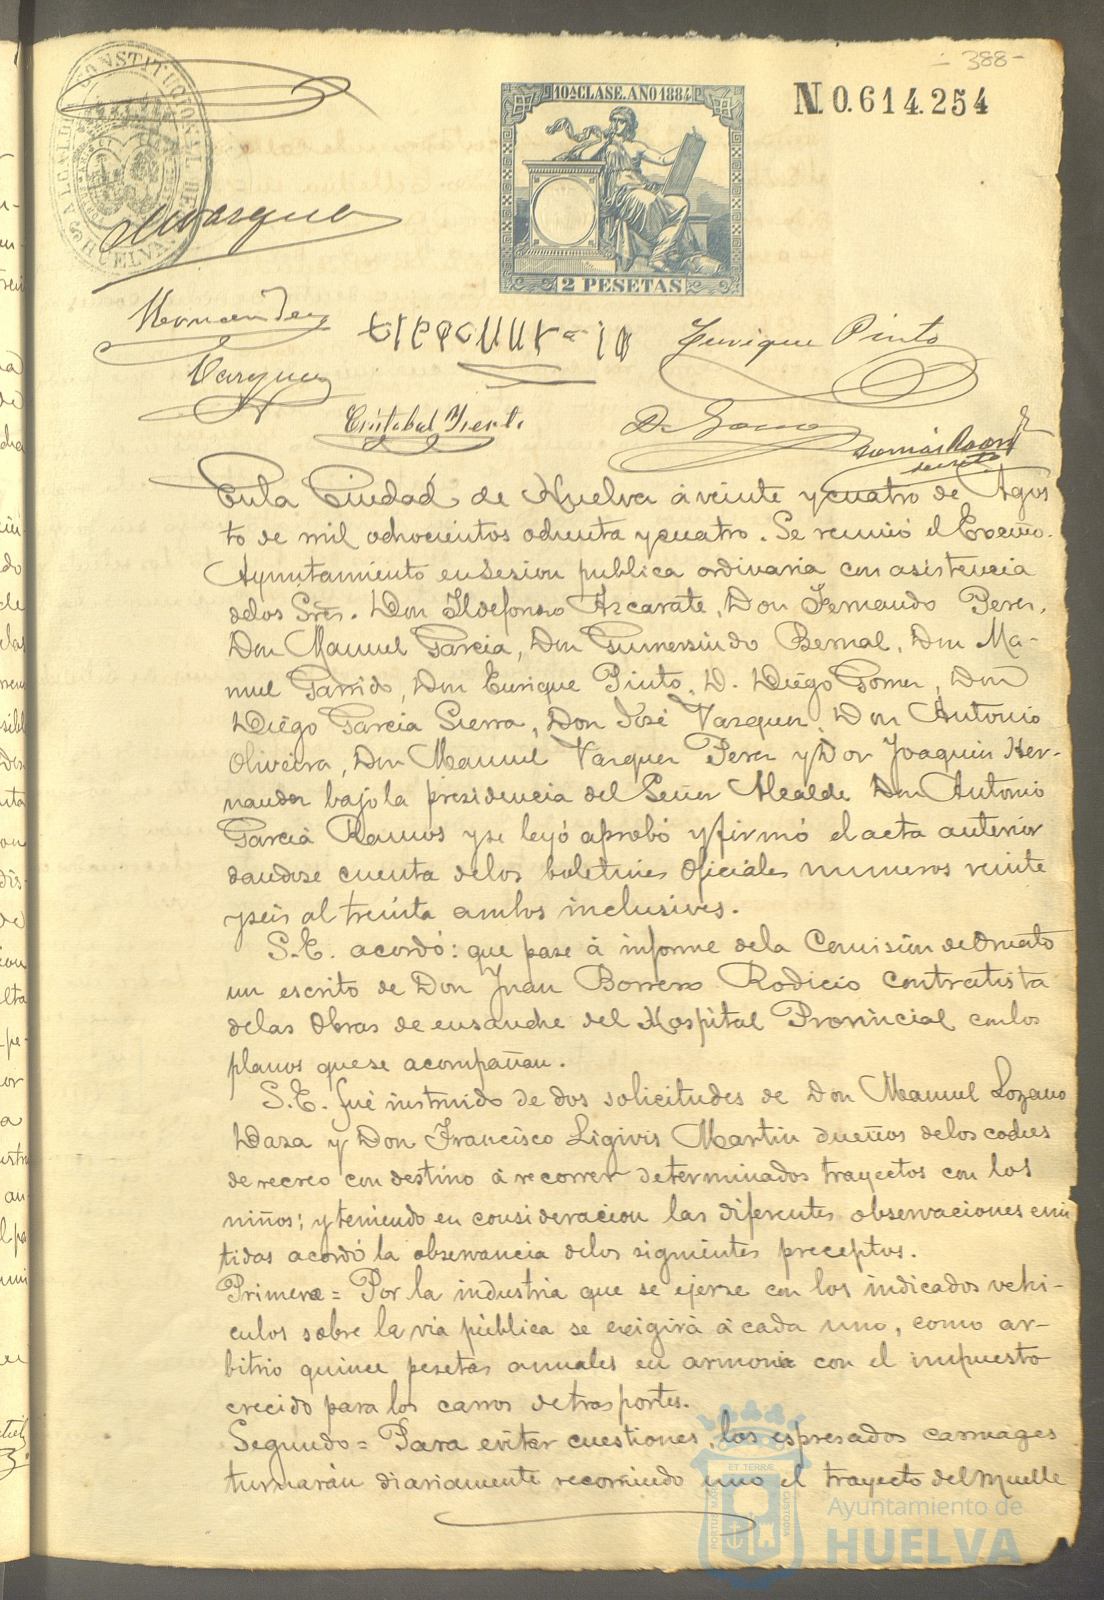 - 388 -
ALCALDIA CONSTITUCIONAL DE HUELVA
10ª CLASE. AÑO 1884
N. 0.614.254
2 PESETAS
Hernandez
Enrique Pinto
Vazquez
D. Gomez
En la Ciudad de Huelva á veinte y cuatro de Agos
to de mil ochocientos ochenta y cuatro. Se reunió el Excmo.
Ayuntamiento en Sesion publica ordinaria con asistencia
de los Sres. Don Ildefonso Azcarate, Don Fernando Perez,
Don Manuel Garcia, Don Gumersindo Bernal, Don Ma-
nuel Garrido, Don Enrique Pinto, D. Diego Gomez, Don
Diego Garcia Sierra, Don José Vazquez, Don Antonio
Oliveira, Don Manuel Vazquez Perez y Don Joaquin Her-
nandez bajo la presidencia del Señor Alcalde Don Antonio
Garcia Ramos y se leyó aprobó y firmó el acta anterior
dandose cuenta de los boletines Oficiales numeros veinte
y seis al treinta ambos inclusives.
S.E. acordó: que pase á informe de la Comisión de Ornato
un escrito de Don Juan Borrero Rodicio contratista
de las Obras de ensanche del Hospital Provincial con los
planos que se acompañan.
S.E. fué instruido de dos solicitudes de Don Manuel Lozano
Daza y Don Francisco Martin dueños de los coches
de recreo con destino á recorrer determinados trayectos con los
niños; y teniendo en consideracion las diferentes observaciones emi
tidas acordó la observancia de los siguientes preceptos.
Primero = Por la industria que se ejerze con los indicados vehi-
culos sobre la via pública se exigirá á cada uno, como ar-
bitrio quince pesetas anuales en armonia con el impuesto
crecido para los carros de trasportes.
Segundo = Para evitar cuestiones, los espresados carruages
turnarán diariamente recorriendo uno el trayecto del Muelle
Ayuntamiento de
HUELVA